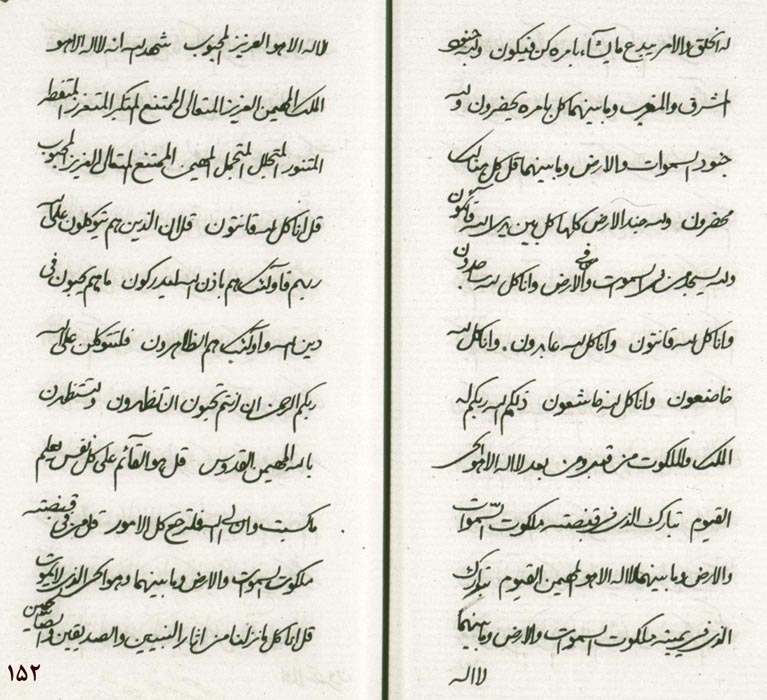 له الخلق والامر يبدع ما يشآء بامره كن فيكون ولله جنود
المشرق والمغرب وما بينهما كل بامره يحضرون ولله
جنود السموات والارض وما بينهما قل كل هنالك
محضرون ولله جند الارض كلها كل بين يدى الله قآئمون
ولله يسجد من فى السموات والارض وانا كل له ساجدون
وانا كل لله قانتون وانا كل لله عابدون وانا كل لله
خاضعون وانا كل لله خاشعون ذلكم الله ربكم له
الملك والملكوت من قبل ومن بعد لا اله الا هو الحى
القيوم تبارك الذى فى قبضته ملكوت السموات
والارض وما بينهما لا اله الا هو المهيمن القيوم تبارك
الذى فى يمينه ملكوت السموات والارض وما بينهما
لا اله
لا اله الا هو العزيز المحبوب شهد الله انه لا اله الا هو
الملك المهيمن العزيز المتعالى الممتنع المتكبر المتعزز
المتنور المتجلل المتجمل المهيمن الممتنع المتعال العزيز المحبوب
قل انا كل لله قانتون قل ان الذين هم يتوكلون على الله
ربهم فاولئك هم باذن الله ليدركون ما هم يحبون فى
دين الله واولئك هم الظاهرون فلتتوكلن على الله
ربكم الرحمن ان انتم تحبون ان تظهرون ولتستظهرن
بالله المهيمن القدوس قل هو القآئم على كل نفس يعلم
ما كسبت وان الى الله فلترجع كل الامور قل من فى قبضته
ملكوت السموات والارض وما بينهما وهو الحى الذى لا يموت
قل انا كل ما نزلنا من اثار النبيين والصديقين
١٥٢